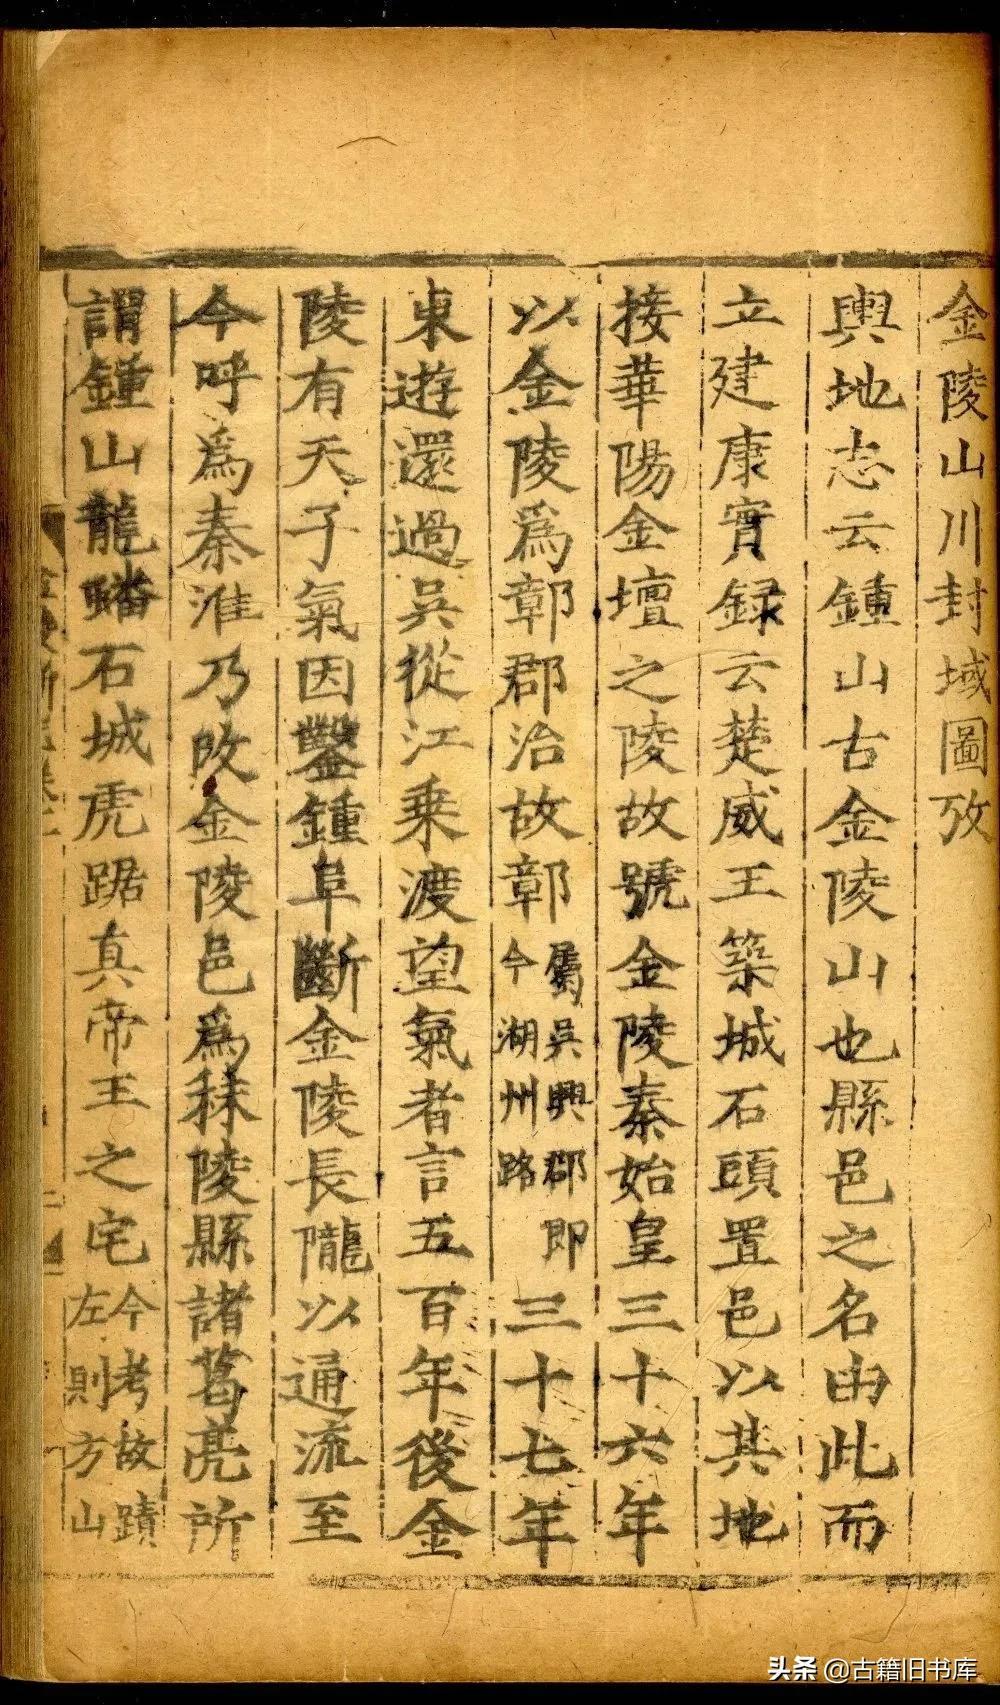 金陵山川封域圖攷
輿地志云鍾山古金陵山也縣邑之名由此而
立建康實録云楚威王築城石頭置邑以其地
接華陽金壇之陵故號金陵秦始皇三十六年
以金陵爲鄣郡治故鄣屬吳興郡即今湖州路三十七年
東遊還過吳從江乗渡望氣者言五百年後金
陵有天子氣因鑿鍾阜斷金陵長隴以通流至
今呼爲秦淮乃改金陵邑爲秣陵縣諸葛亮所
謂鍾山龍蟠石城虎踞真帝王之宅今考故蹟左則方山
頭条 @古籍旧书库